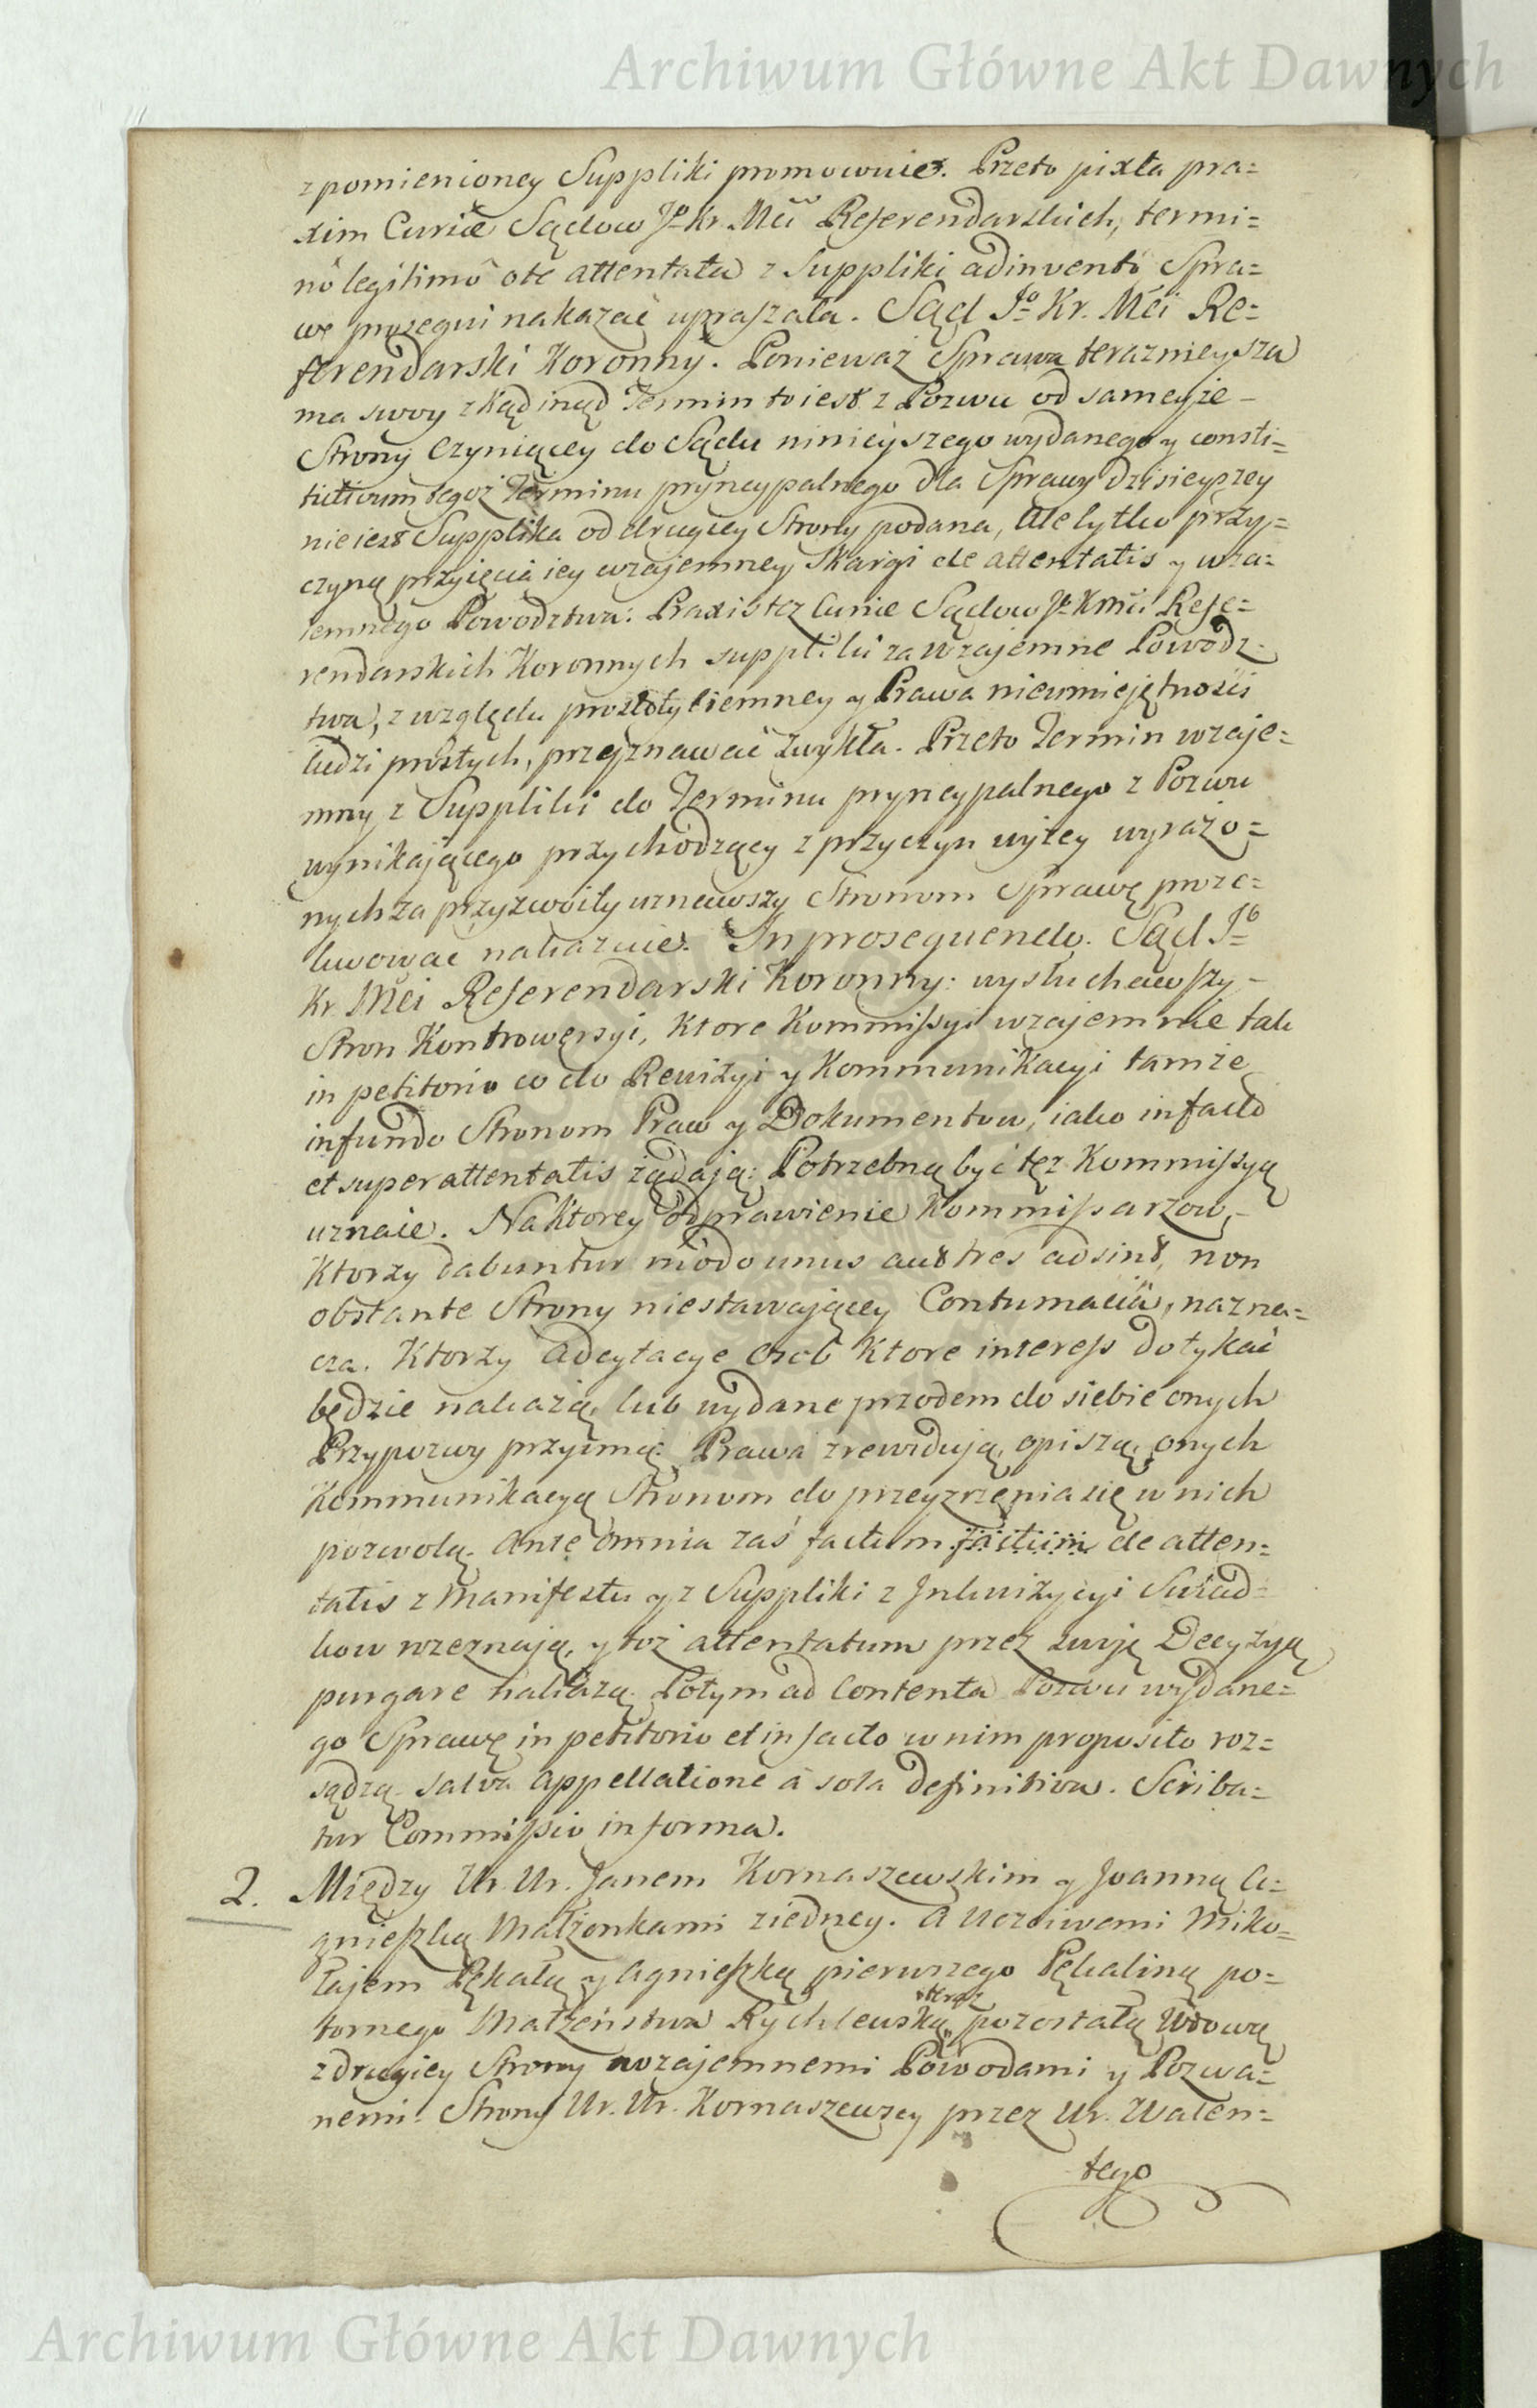 Archiwum Główne Akt Dawnych
z pomienioney Suppliki promowuie. Przeto juxta pra=
xim Curiæ Sądow Jo Kr. Mći Referendarskich, termi=
nô legitimô de attentatis z Suppliki adinventô Spra=
wę prosequi nakazać upraszała. Sąd Jo Kr. Mći Re=
ferendarski Koronny. Ponieważ Sprawa teraznieysza
ma swoy zkądinąd Termin to iest z Pozwu od sameyże
Strony Czyniącey do Sądu ninieyszego wydanego y consti=
tutivum tegoż Terminu pryncypalnego dla Sprawy dzisieyszey
nie iest Supplika od drugiey Strony podana, ale tylko przy=
czyną przyięcia iey wzajemney Skargi de attentatis y wza=
iemnego Powodztwa: Praxis też Curiæ Sądow Jo K Mći Refe=
rendarskich Koronnych suppliki za wzajemne Powodz=
twa, z względu prostoty ciemney y Prawa nieumiejętności
ludzi prostych, przyznawać zwykła. Przeto Termin wzaje=
mny z Suppliki do Terminu pryncypalnego z Pozwu
wynikającego przychodzący z przyczyn wyżey wyrażo=
nych za przyzwoity uznawszy Stronom Sprawę proze=
kwować nakazuie. In prosequendo. Sąd Jo
Kr. Mći Referendarski Koronny: wysłuchawszy
Stron Kontrowersyi, Ktore Kommissyi wzajemnie tak
in petitorio co do Rewizyi y Kommunikacyi tamże
in fundo Stronom Praw y Dokumentow, iako in facto
et super attentatis żądają: Potrzebną być tęż Kommissyą
uznaie. Na Ktorey odprawienie Kommissarzow,
Ktorzy dabuntur modo unus aut tres adsint, non
obstante Strony niestawającey Contumaciâ, nazna=
cza. Ktorzy adcytacye osob Ktore interess dotykać
będzie nakażą, lub wydane przodem do siebie onych
Przypozwy przyimą. Prawa zrewidują, opiszą, onych
Kommunikacyą Stronom do przeyzrzenia się w nich
pozwolą. Ante omnia zaś factum factum de atten=
tatis z Manifestu y z Suppliki z Inkwizycyi Swiad=
kow rozeznają, y toż attentatum przez swoję Decyzyą
purgare nakażą. Potym ad Contenta Pozwu wydane=
go Sprawę in petitorio et in facto w nim proposito roz=
sądzą. salva appellatione à sola definitiva. Scriba=
tur Commissio in forma.
2. Między Ur. Ur. Janem Kornaszewskim y Joanną A=
gnieszką Małżonkami z iedney. A Uczciwemi Miko=
łajem Pękałą y Agnieszką pierwszego Pękaliną po=
tornego Małżeństwa Rychlewską teraz pozostałą Wdową
z drugiey Strony wzajemnemi Powodami y Pozwa=
nemi. Strony Ur. Ur. Kornaszewscy przez Ur. Walen=
tego
Archiwum Główne Akt Dawnych